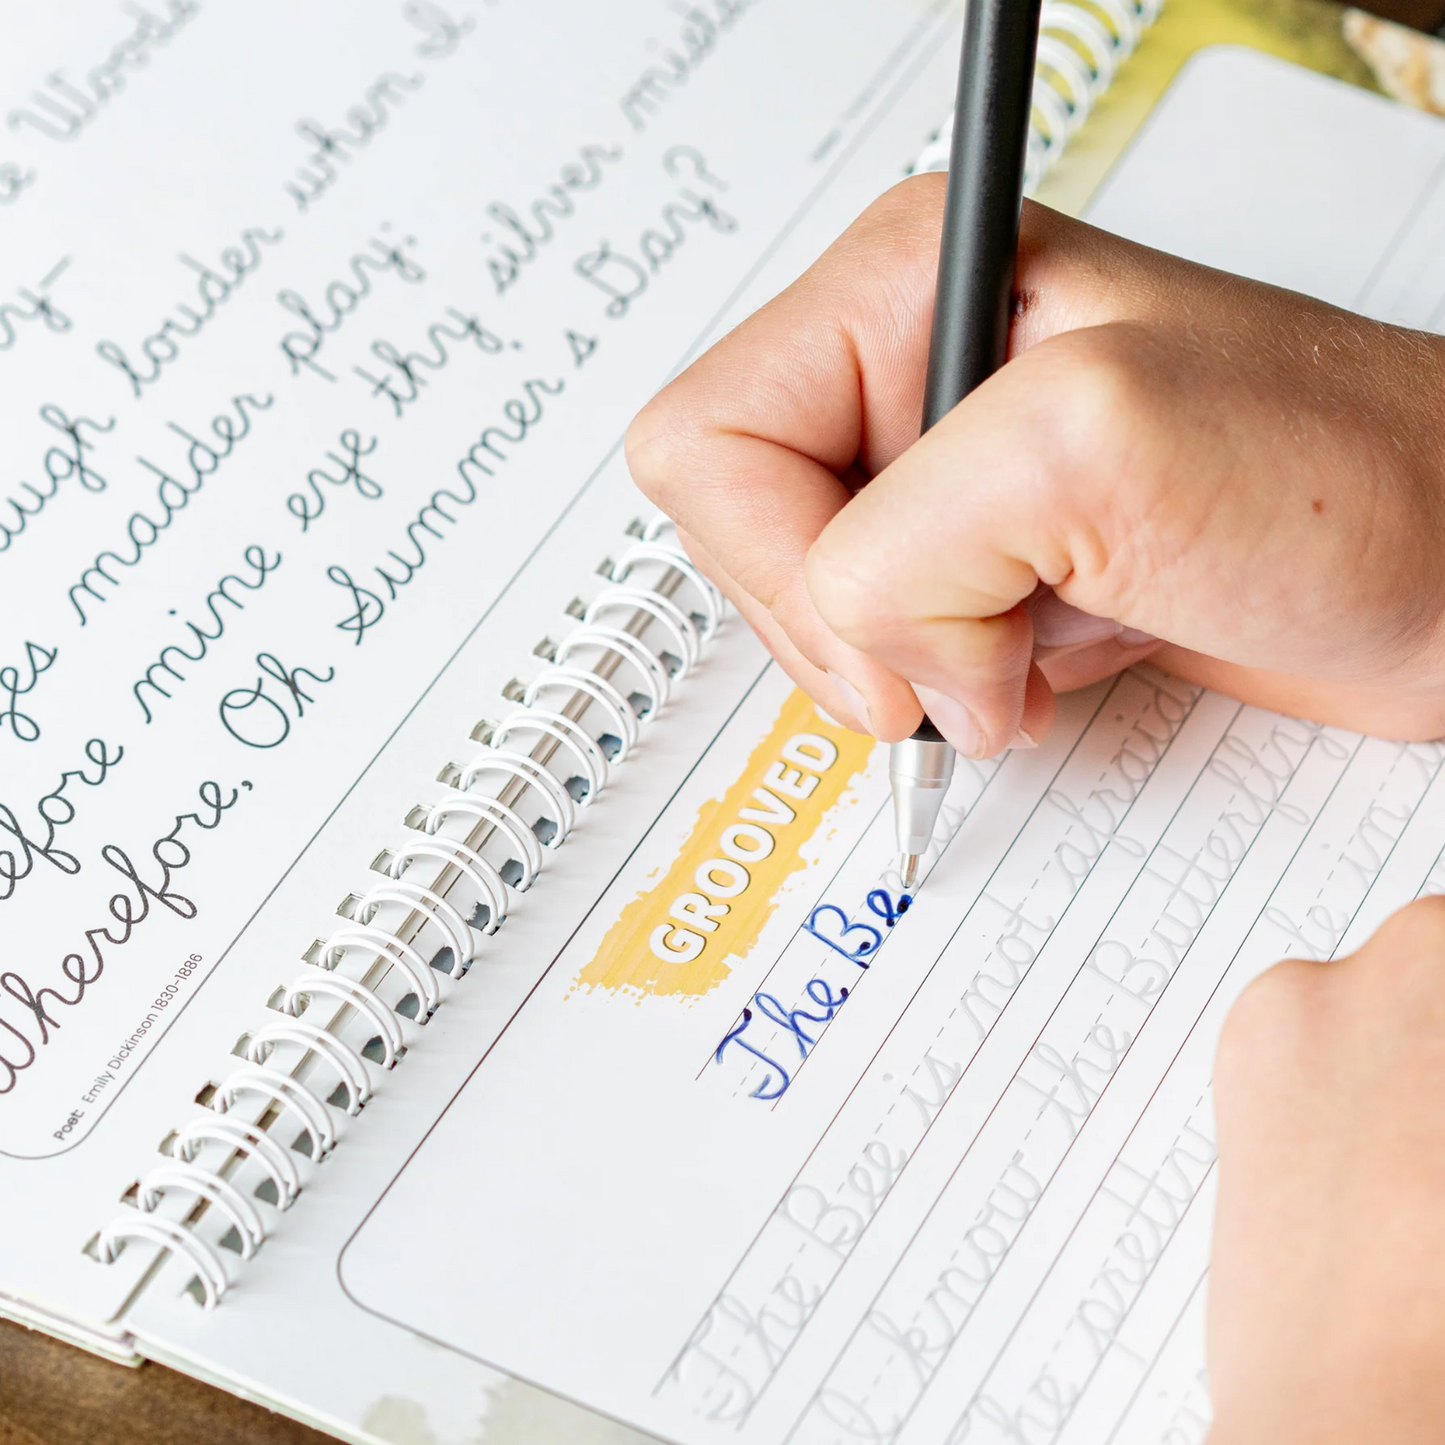 Woods
louder when I
madder play:
before mine eye thy silver
Therefore, Oh Summer s Day?
Poet: Emily Dickinson 1830-1886
GROOVED
The Be
The Bee is not afraid
I know the Butterfly
The pretty